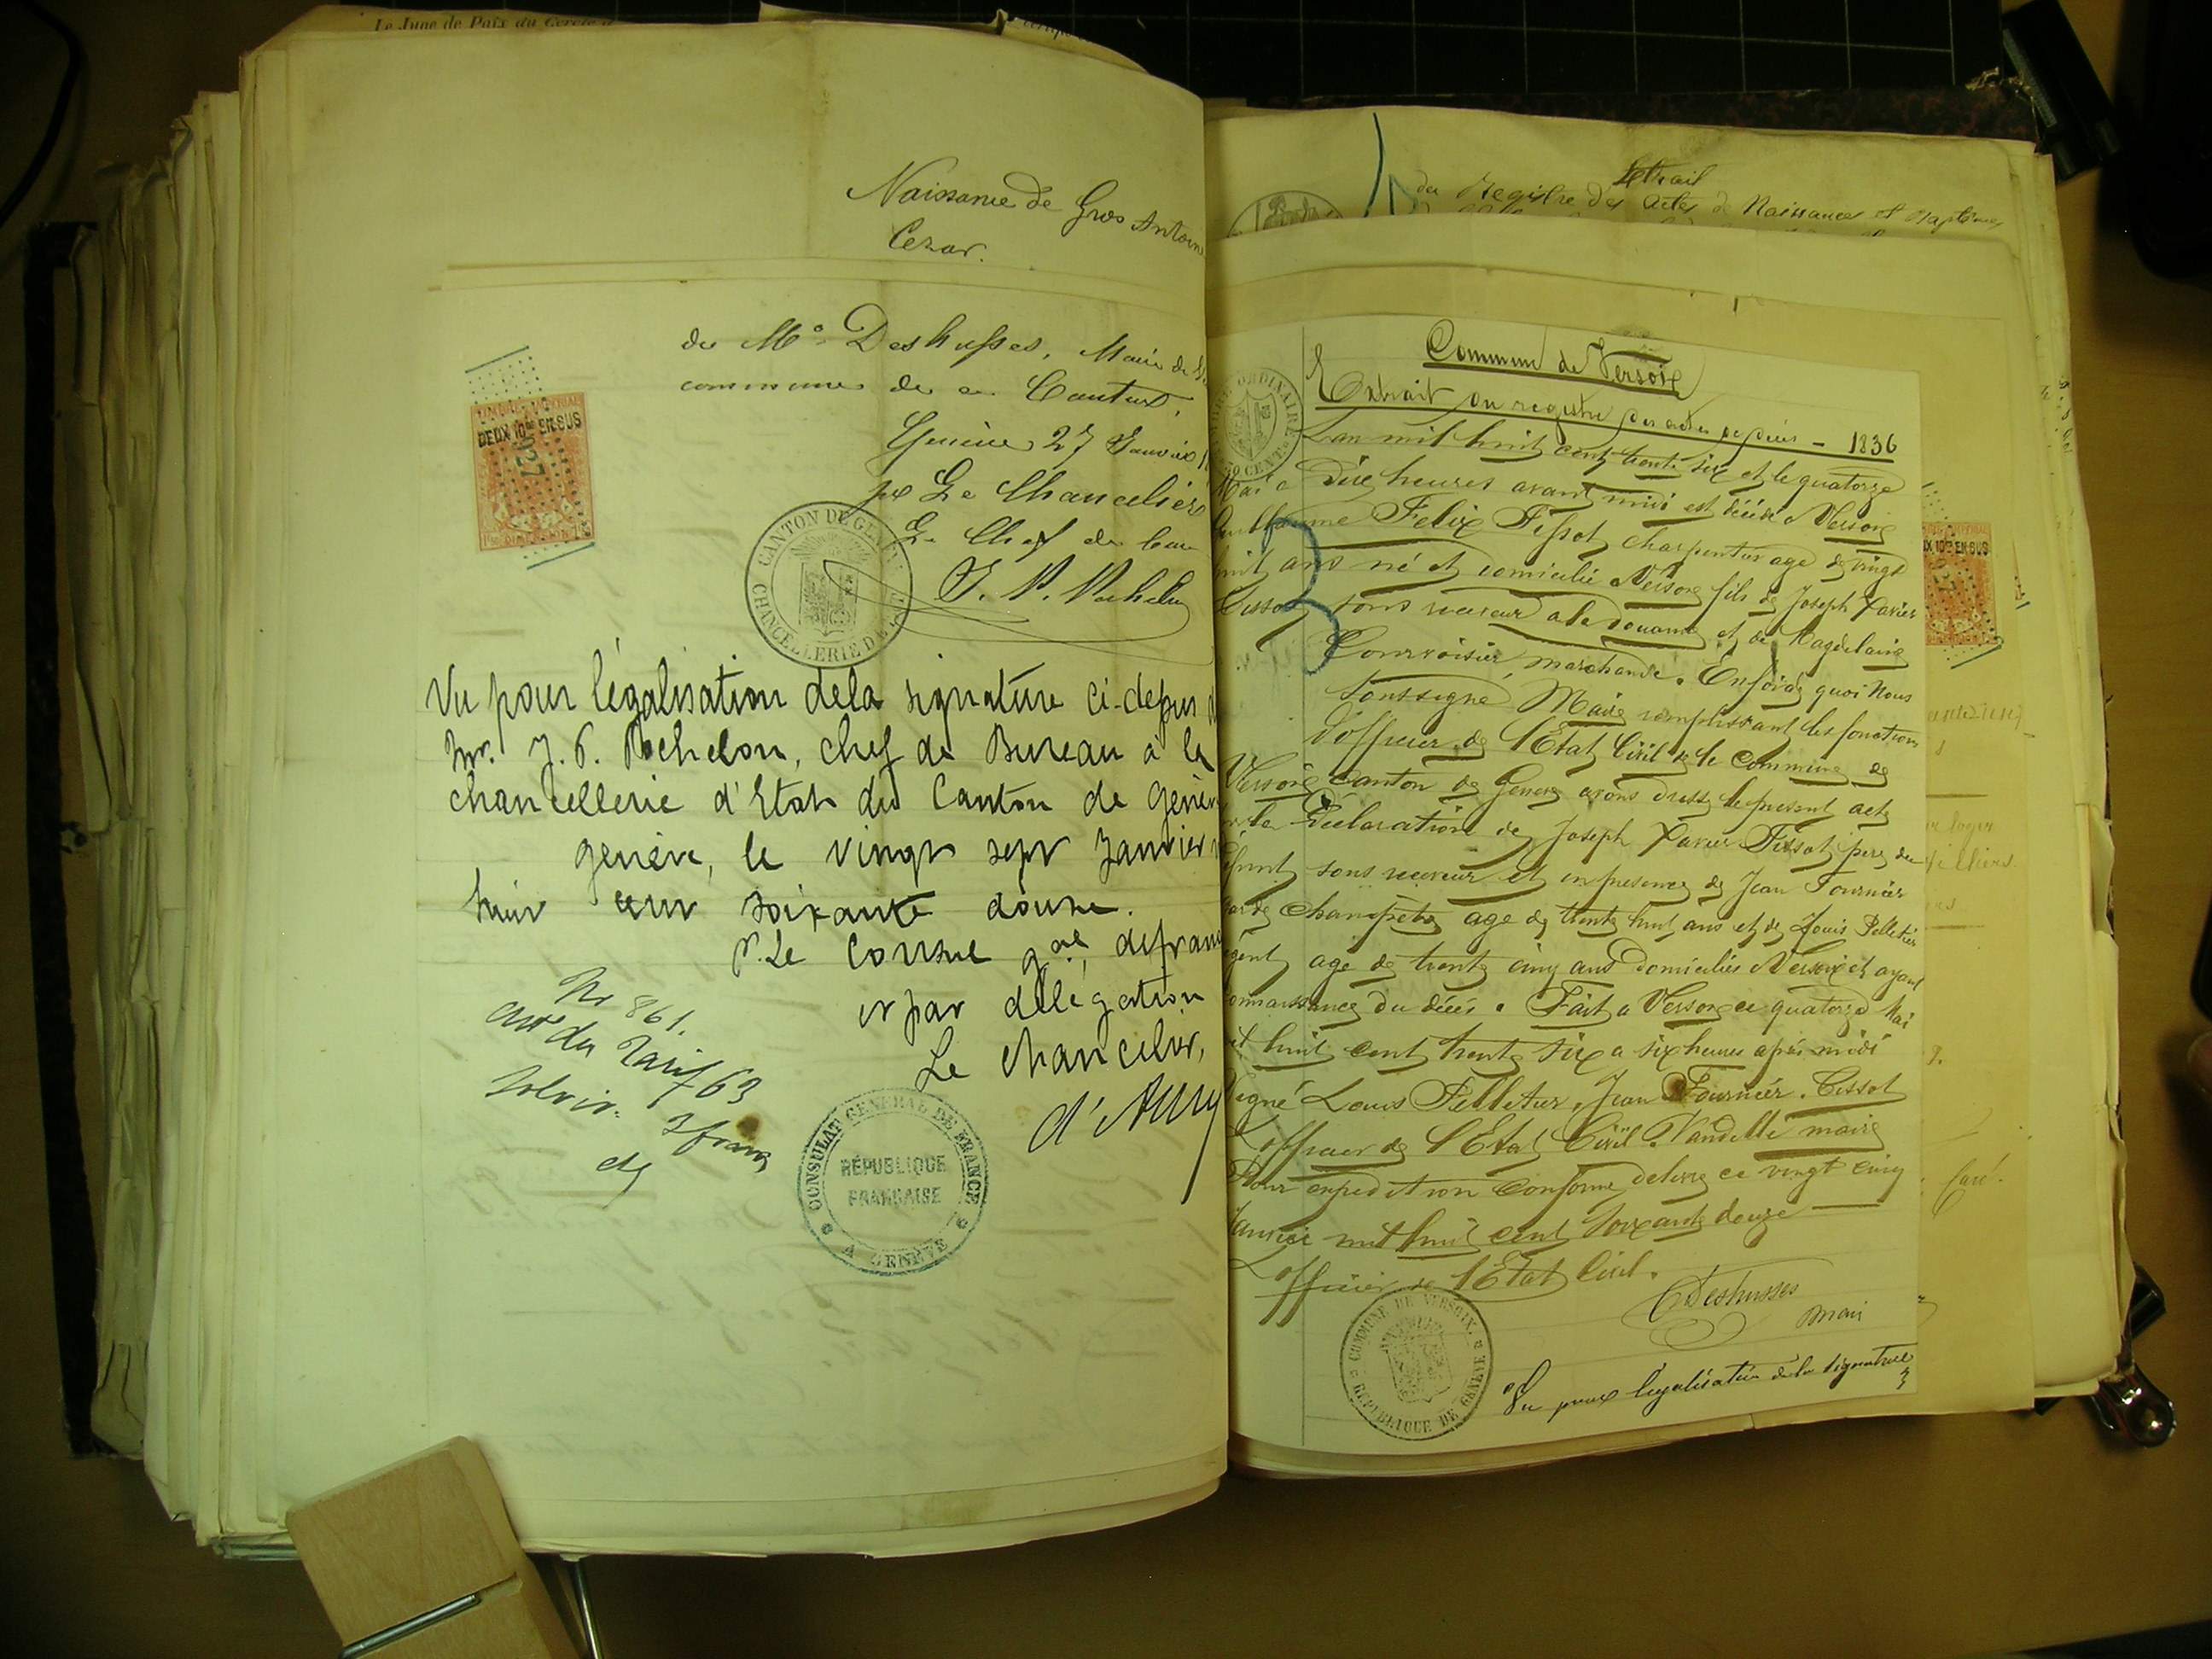 Le Juge de Paix du Cercle d
Naissance de Gros Antoin
Cezar.
de Mr Deshusses, Maire de
commune de ce Canton,
Genève 27 Janvier
pr Le Chancelier
Le Chef de bur
CANTON DE GENÈVE
CHANCELLERIE D'É
DEUX 10es EN SUS
Vu pour légalisation dela signature ci-dessus d
Mr. J. P. Rochelon, chef de Bureau à la
chancellerie d'Etat du Canton de Genève
Genève, le vingt sept Janvier
huit cent soixante douze.
P. Le Consul gal de france
et par délégation
Le chancelier,
No 861.
Art du Tarif 63
CONSULAT GENERAL DE FRANCE
RÉPUBLIQUE
FRANÇAISE
A GENEVE
Extrait
du Registre des Actes de Naissances et Baptêmes
Commune de Versoix
Extrait du registre des actes de décès - 1836
L'an mil huit cent trente six et le quatorze
Mai a dix heures avant midi est décédé a Versoix
Guillaume Felix Tissot charpentier age de vingt
huit ans né et domicilié a Versoix fils de Joseph Xavier
Tissot sous receveur a la douane et de Magdelaine
Courvoisier, marchande. En foi de quoi Nous
soussigné Maire remplissant les fonctions
d'officier de l'Etat Civil de la Commune de
Versoix canton de Geneve avons dressé le present acte
sur la Déclaration de Joseph Xavier Tissot pere du
défunt sous receveur et en presence de Jean Fournier
garde Champêtre age de trente huit ans et de Louis Pelletier
régent age de trente cinq ans domiciliés a Versoix et ayant
connaissance du décès. Fait a Versoix ce quatorze Mai
mil huit cent trente six a six heures après midi
Signé Louis Pelletier, Jean Fournier. Tissot
L'officier de l'Etat Civil Vandelle maire
Pour expedition Conforme delivré ce vingt cinq
Janvier mil huit cent soixante douze
L'officier de l'Etat Civil.
Deshusses
maire
COMMUNE DE VERSOIX
REPUBLIQUE DE GENEVE
Vu pour légalisation de la signature